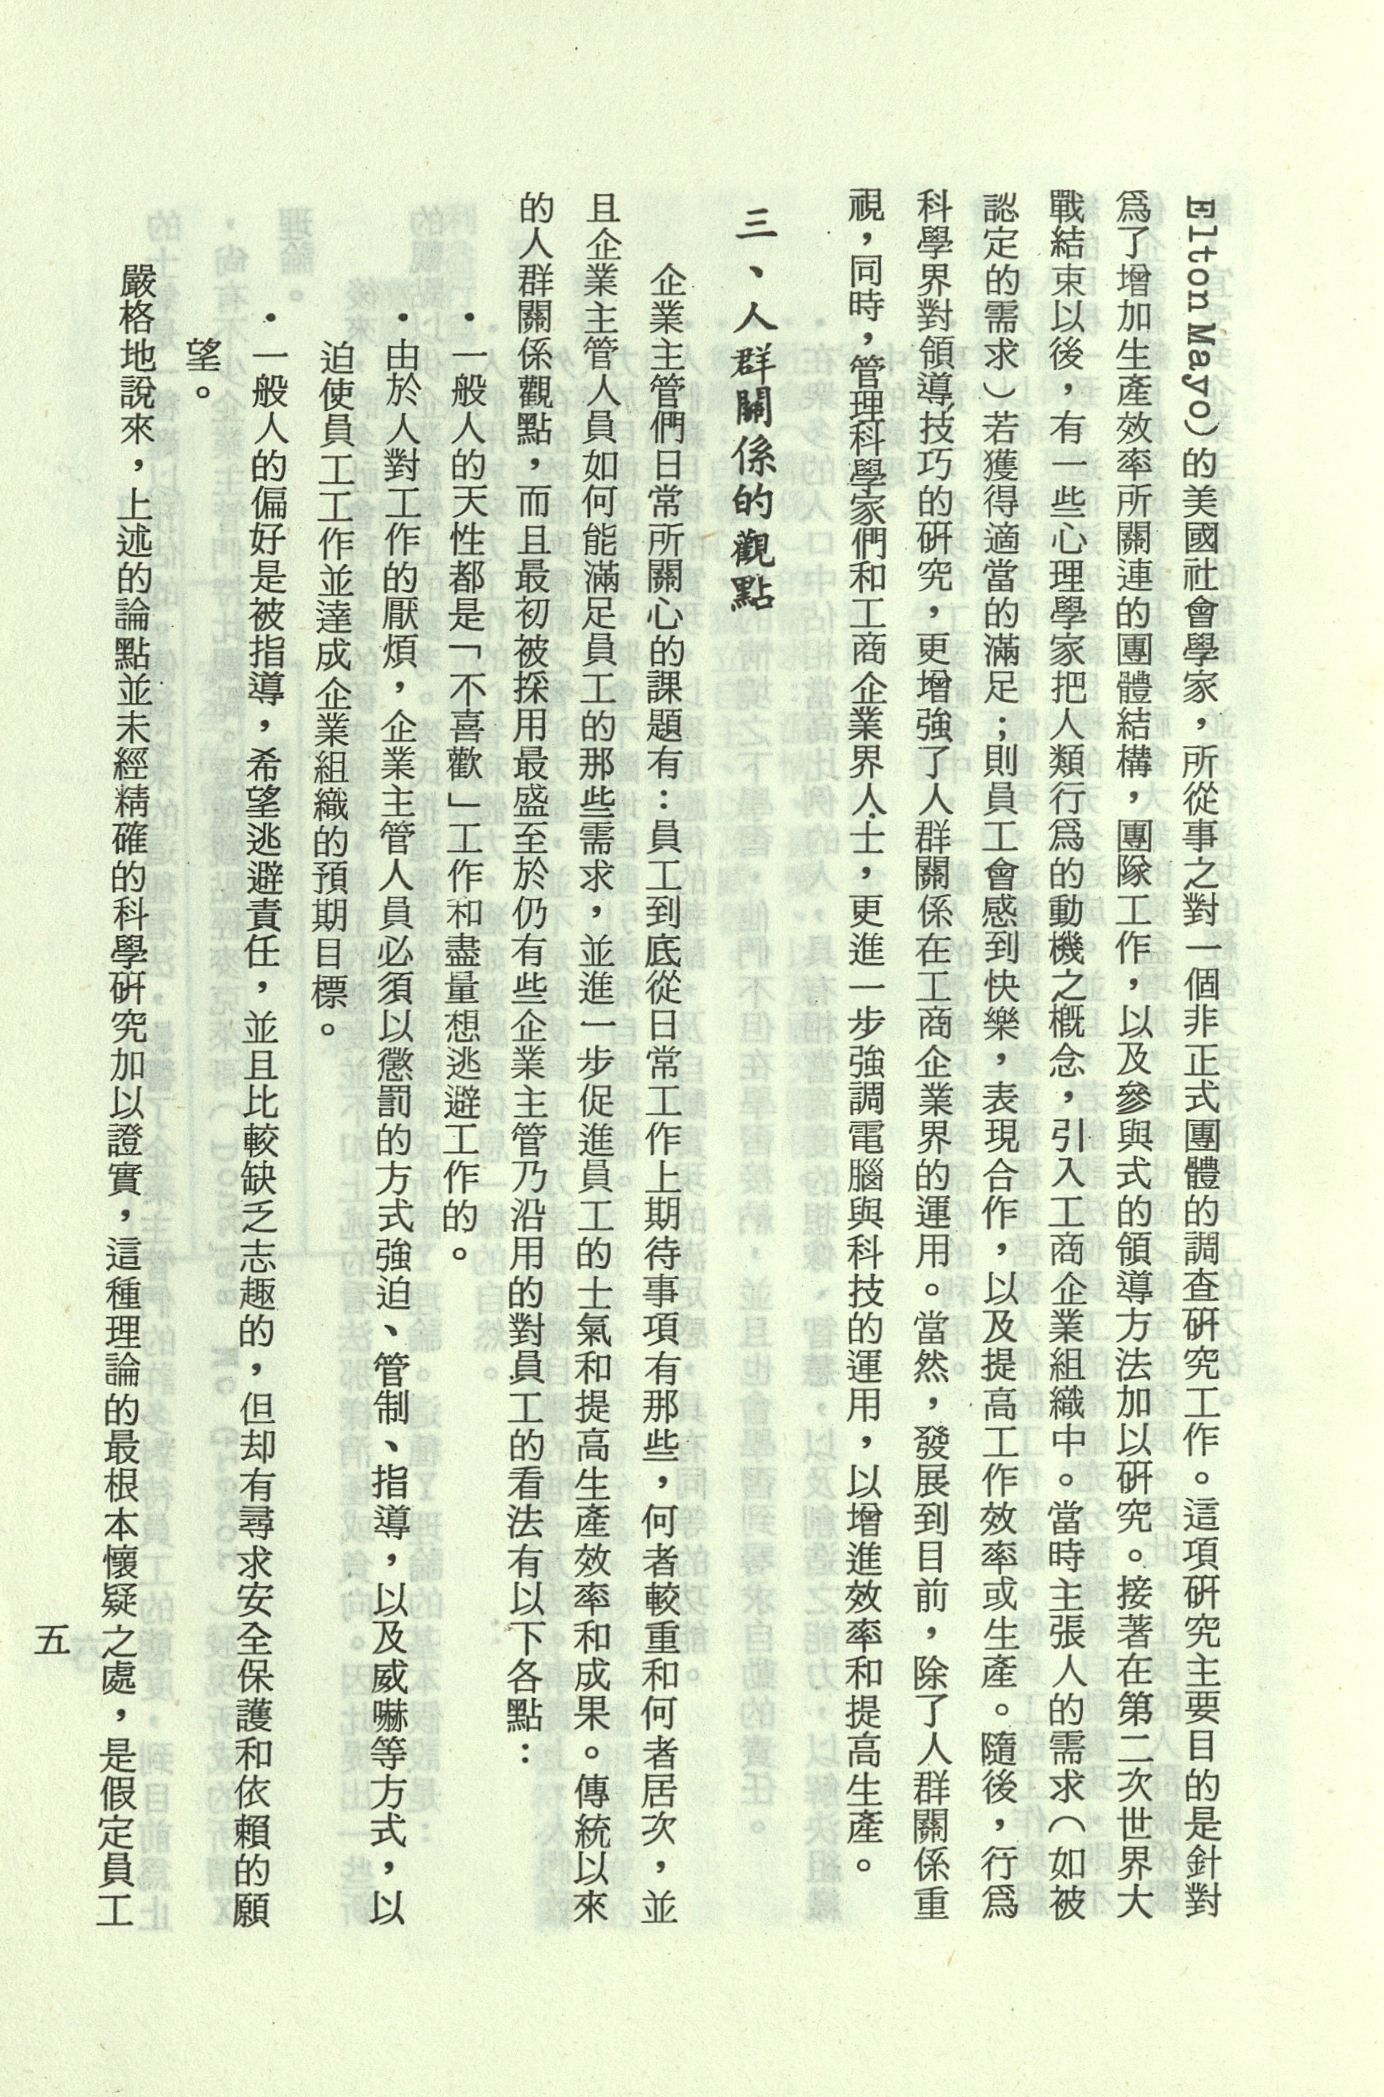 Elton Mayo)的美國社會學家，所從事之對一個非正式團體的調查研究工作。這項研究主要目的是針對
爲了增加生產效率所關連的團體結構，團隊工作，以及參與式的領導方法加以研究。接著在第二次世界大
戰結束以後，有一些心理學家把人類行爲的動機之概念，引入工商企業組織中。當時主張人的需求（如被
認定的需求）若獲得適當的滿足；則員工會感到快樂，表現合作，以及提高工作效率或生產。隨後，行爲
科學界對領導技巧的研究，更增強了人群關係在工商企業界的運用。當然，發展到目前，除了人群關係重
視，同時，管理科學家們和工商企業界人士，更進一步強調電腦與科技的運用，以增進效率和提高生產。
三、人群關係的觀點
企業主管們日常所關心的課題有：員工到底從日常工作上期待事項有那些，何者較重和何者居次，並
且企業主管人員如何能滿足員工的那些需求，並進一步促進員工的士氣和提高生產效率和成果。傳統以來
的人群關係觀點，而且最初被採用最盛至於仍有些企業主管乃沿用的對員工的看法有以下各點：
•一般人的天性都是「不喜歡」工作和盡量想逃避工作的。
•由於人對工作的厭煩，企業主管人員必須以懲罰的方式強迫、管制、指導，以及威嚇等方式，以
迫使員工工作並達成企業組織的預期目標。
•一般人的偏好是被指導，希望逃避責任，並且比較缺乏志趣的，但却有尋求安全保護和依賴的願
望。
嚴格地說來，上述的論點並未經精確的科學研究加以證實，這種理論的最根本懷疑之處，是假定員工
五